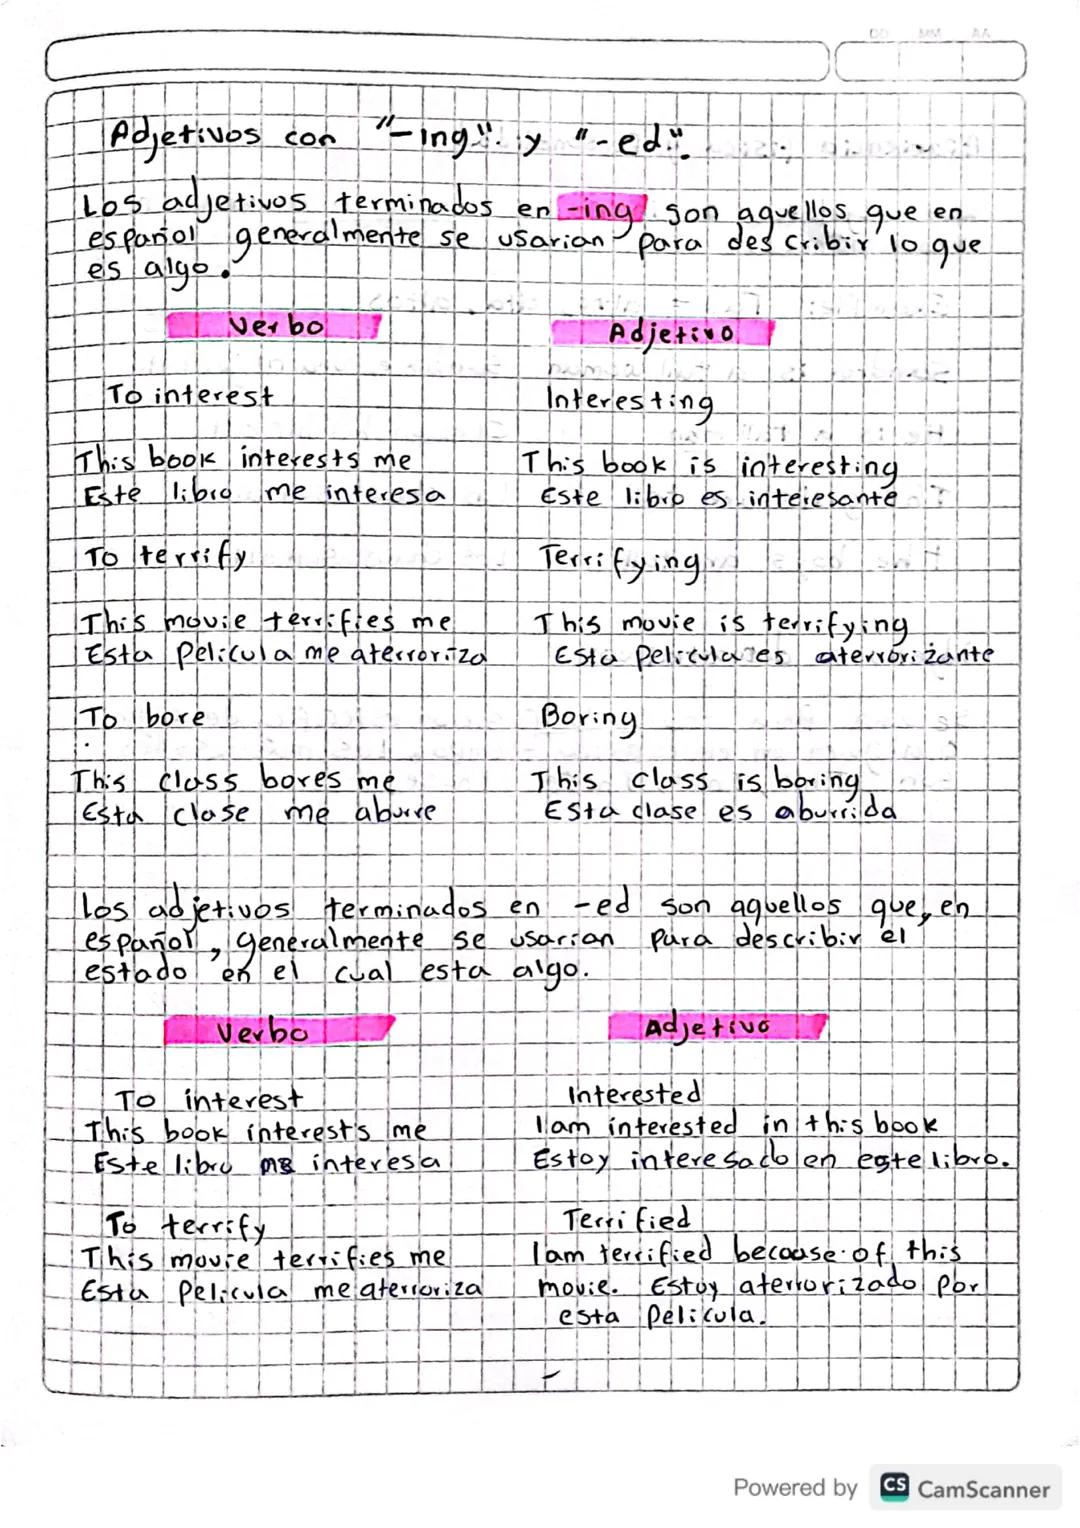 DD MM AA
Adjetivos con "-ing" y "-ed".
Los adjetivos terminados en -ing son aquellos que en
español generalmente se usarian para describir lo que
es algo.
Verbo Adjetivo
To interest Interesting
This book interests me This book is interesting
Este libro me interesa Este libro es interesante
To terrify Terrifying
This movie terrifies me This movie is terrifying
Esta Pelicula me aterroriza Esta Pelicula es aterrorizante
To bore Boring
This class bores me This class is boring
Esta clase me aburre Esta clase es aburrida
los adjetivos terminados en -ed son aquellos que, en
español, generalmente se usarian para describir el
estado en el cual esta algo.
Verbo Adjetivo
To interest Interested
This book interests me I am interested in this book
Este libro me interesa Estoy interesado en este libro.
To terrify Terrified
This movie terrifies me I am terrified becouse of this
Esta Pelicula me aterroriza movie. Estoy aterrorizado por
esta Pelicula.
Powered by CS CamScanner